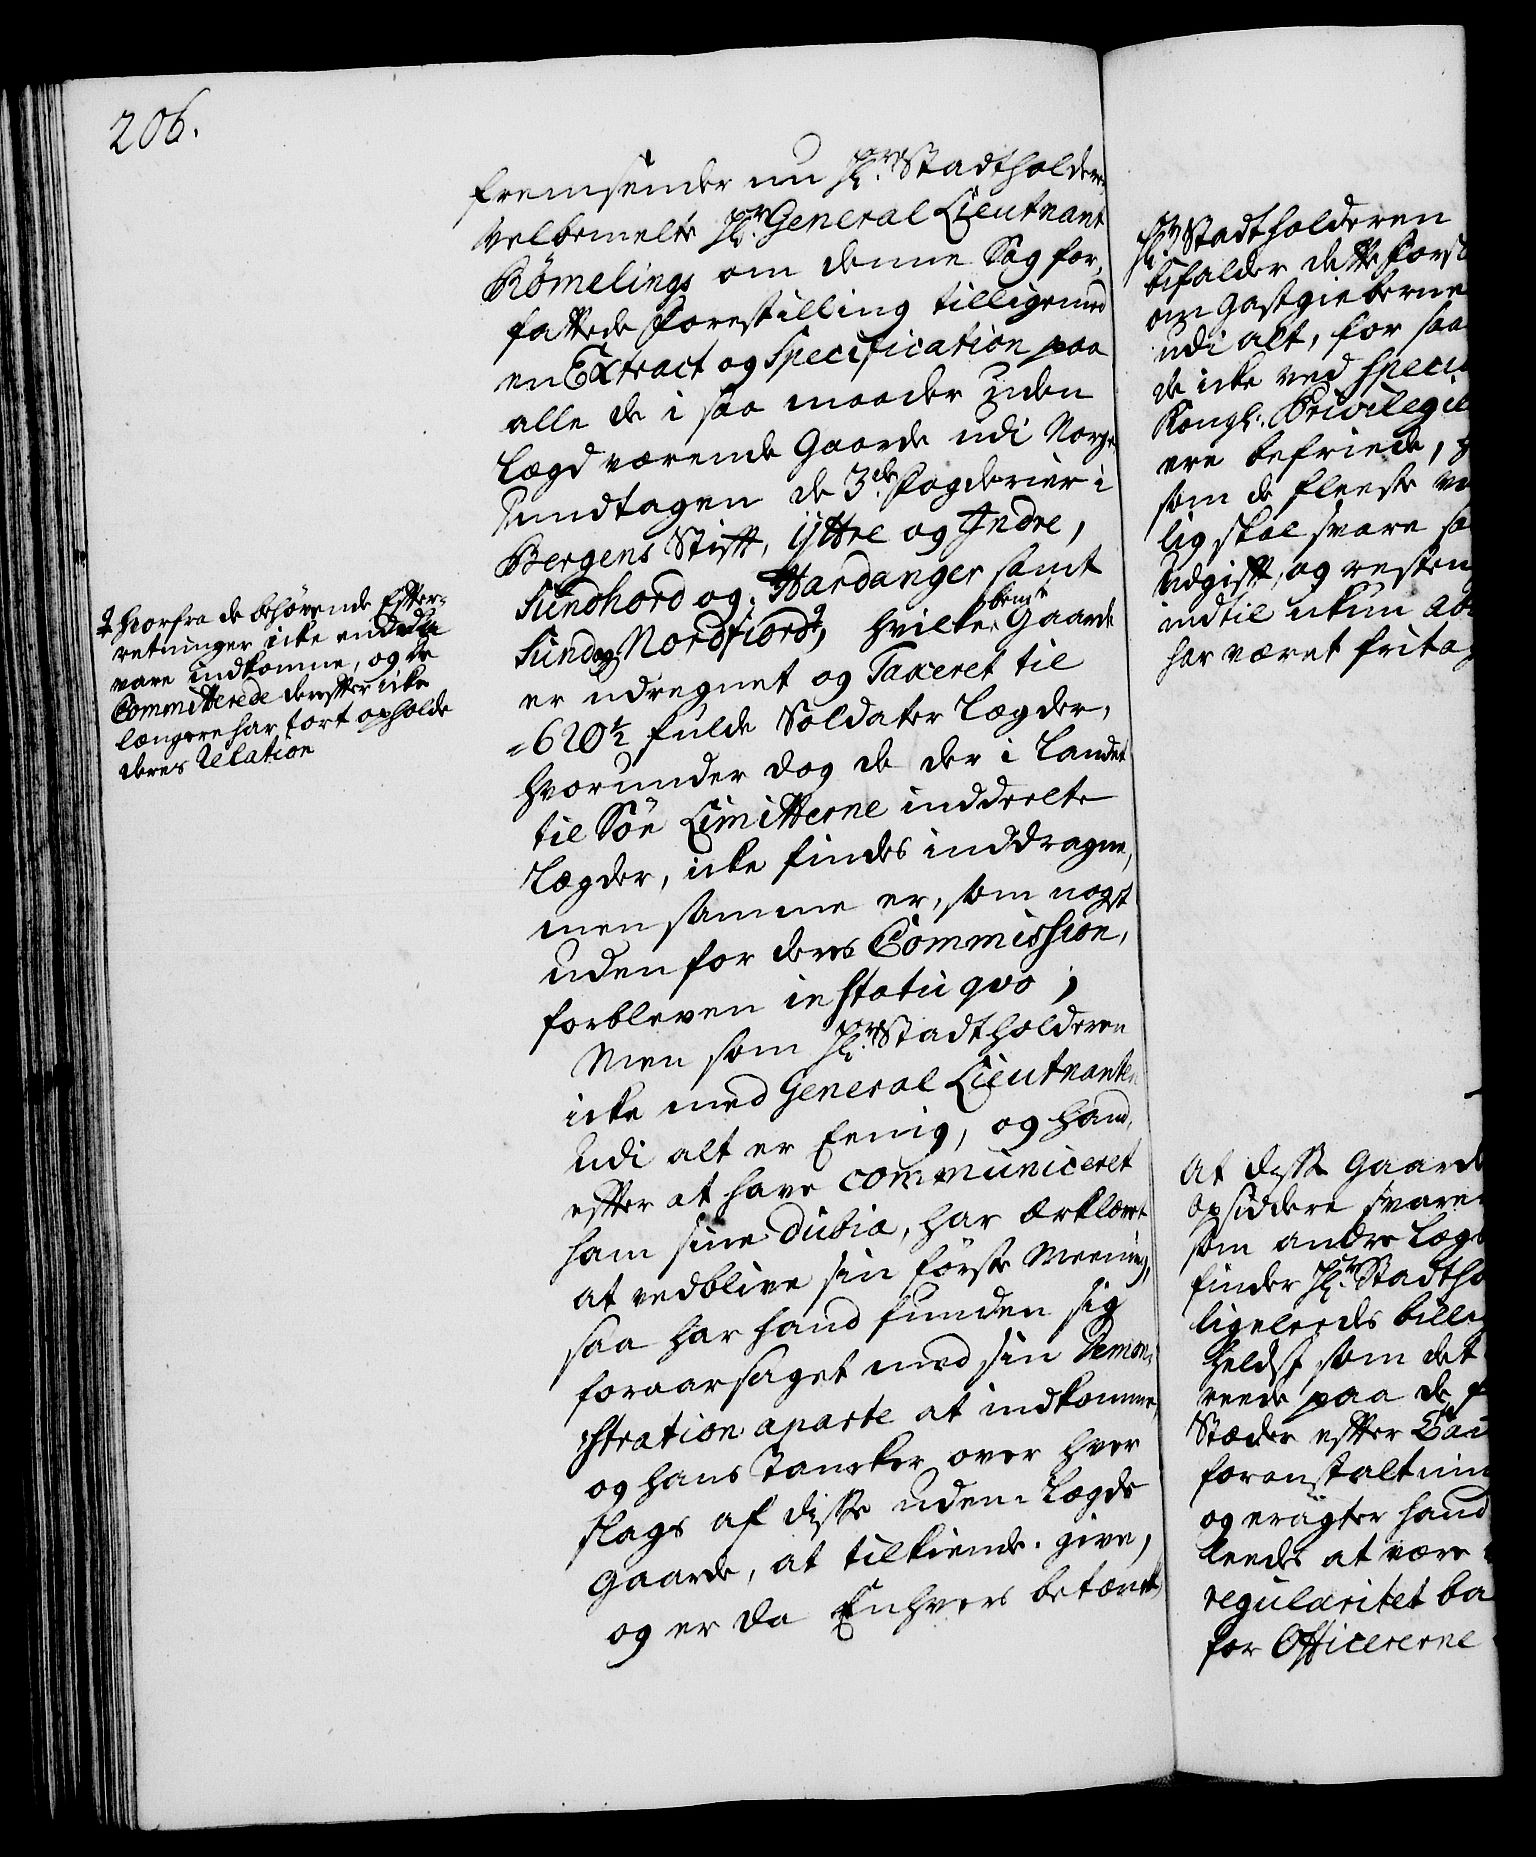 206.
fremsender nu Hr. Stadtholderen
velbemelte Hr. General Lieutnant
Römelings om denne Sag for,
fattede Forestilling tilligemed
en Extract og Specification paa
alle de i saa maader uden
Lægd værende Gaarde udi Norge
undtagen de 3de. Fogderier i
Bergens Stift, ÿttre og Indre,
Sundhord og Hardanger samt
Sund og Nordfiord, hvilke bemte Gaarde
er udregnet og Taxeret til
620½ fulde Soldater Lægder,
hvorunder dog de der i Landet
til Söe Limitterne inddeelte
Lægder, icke findes inddragne,
men samme er, som noget
uden for deres Commission,
forbleven in Statu qvo;
Men som Hr. Stadtholderen
icke med General Lieutnanten
udi alt er Eenig, og hand,
efter at have communiceret
ham sine dubia, har erklæret
at vedblive sin förste Meening,
saa har hand funden sig
foraarsaget med sin Remon,
stration aparte at indkomme,
og hans Tancker over hver
slags af disse uden Lægds
Gaarde, at tilkiende give,
og er da Enhvers betænk,
hvorfra de behörende Efter=
retninger icke endda
vare indkomne, og de
Committerede derefter icke
længere har tort opholde
deres Relation
Hr. Stadtholderen
bifalder dette Forst
om Gastgieberne
udi alt, for saa
de icke ved Speci
Kongl. Privilegie
ere befriede,
som de fleeste
lig skal svare
udgift, og resten
indtil
har været fritag
at disse Gaarde
opsiddere svare
som andre Lægd
finder Hr. Stadtho
ligeleedes billig
heldst som det
reede paa de
Stæder efter
foranstaltnin
og eragter hand
leedes at være
regularitet ba
for Officererne